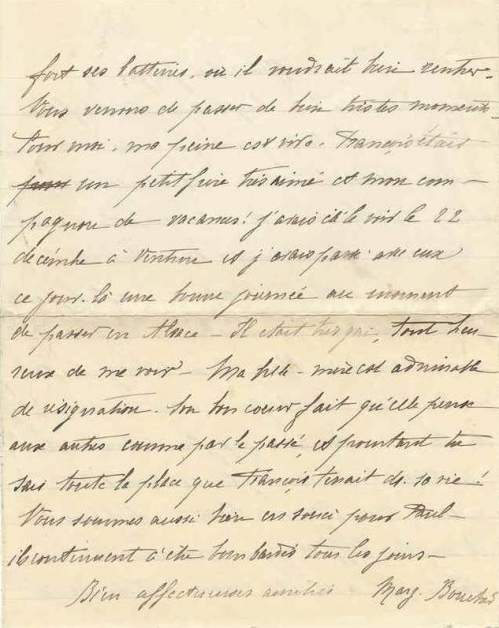 fort ses batteries, où il voudrait bien rentrer.
Nous venons de passer de bien tristes moments.
Pour moi, ma peine est vive. François était
un petit frère très aimé et mon com-
pagnon de vacances! j'avais été le voir le 22
décembre à et j'avais passé avec eux
ce jour-là une bonne journée au moment
de passer en Alsace – Il était très gai, tout heu-
reux de me voir – Ma belle-mère est admirable
de résignation. Son bon coeur fait qu'elle pense
aux autres comme par le passé, et pourtant tu
sais toute la place que François tenait ds. sa vie!
Nous sommes aussi bien en souci pour Paul –
ils continuent à être bombardés tous les jours –
Bien affectueuses amitiés Marg.